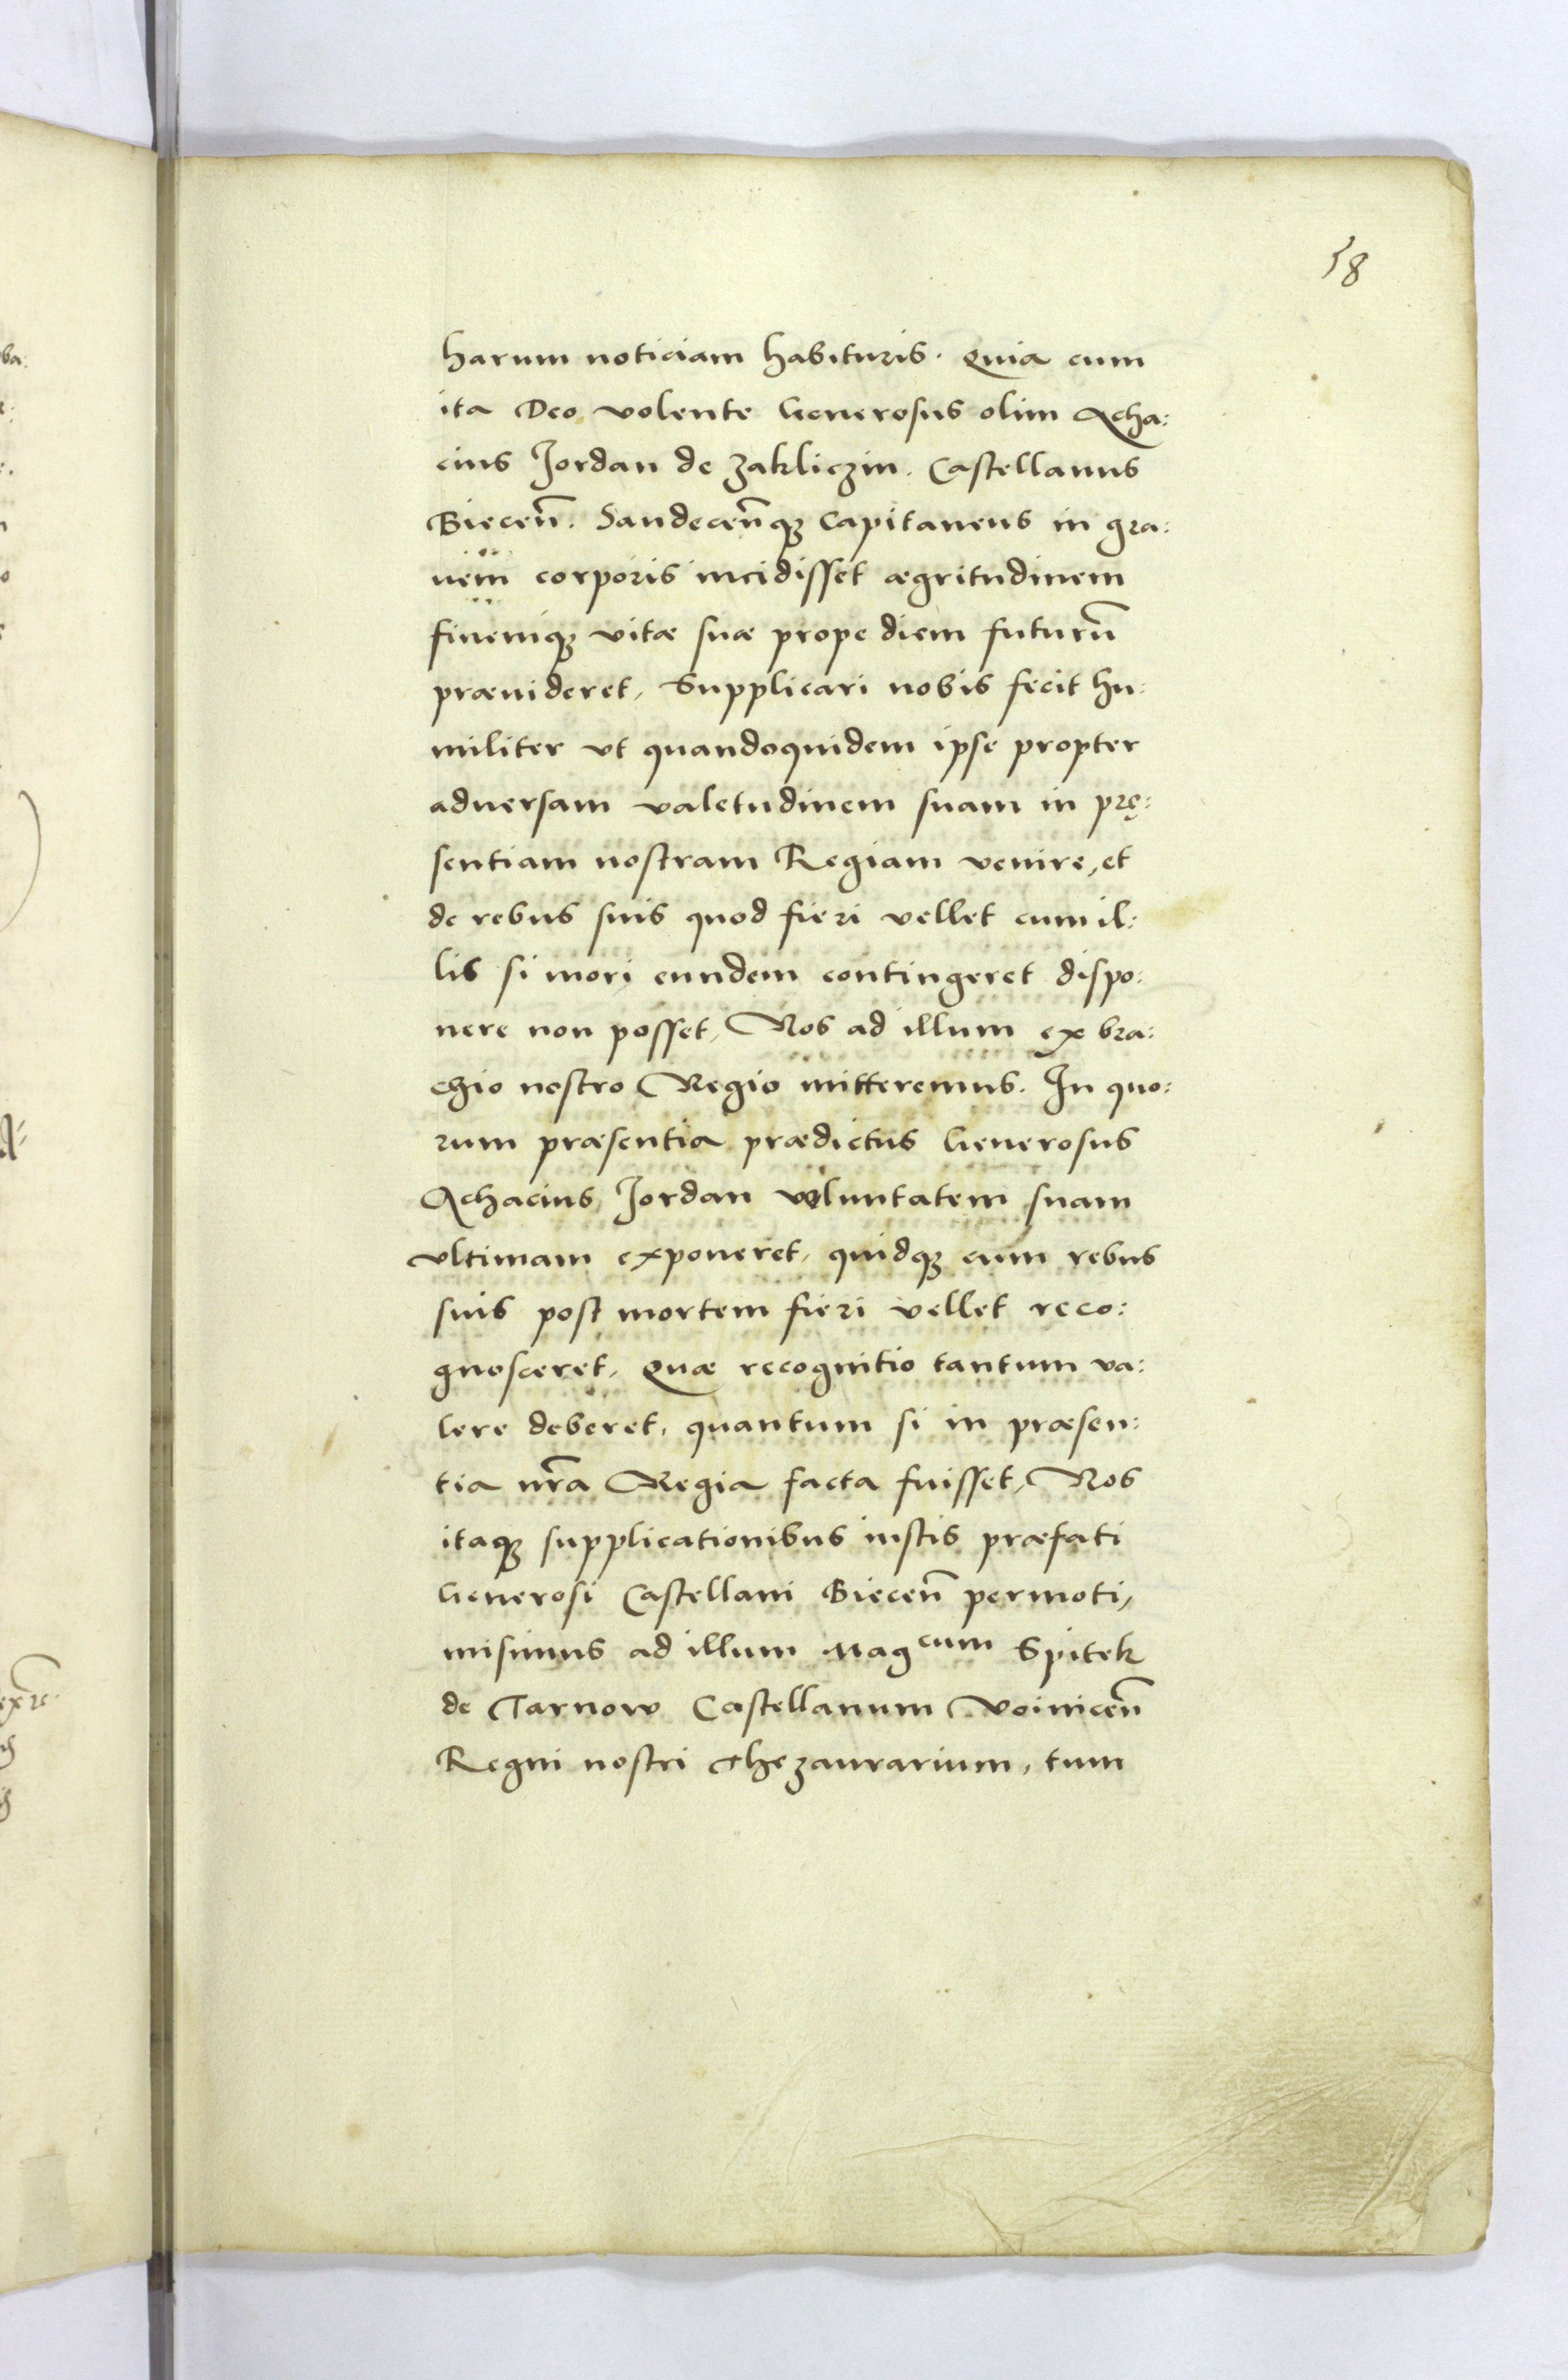 58
harum noticiam habituris. Quia cum
ita Deo volente Generosus olim Acha:
cius Jordan de Zakliczin. Castellanus
Biecen̄. Sandecen̄q₃ Capitaneus in gra:
uem corporis incidisset ægritudinem
finemq₃ vitæ suæ prope diem futurū
præuideret, Supplicari nobis fecit hu:
militer vt quandoquidem ipse propter
aduersam valetudinem suam in prę:
sentiam nostram Regiam venire, et
de rebus suis quod fieri vellet cum il:
lis si mori eundem contingeret dispo:
nere non posset, Nos ad illum ex bra:
chio nostro Regio mitteremus. In quo:
rum præsentia prædictus Generosus
Achacius Jordan voluntatem suam
vltimam exponeret, quidq₃ cum rebus
suis post mortem fieri vellet reco:
gnosceret, Quæ recognitio tantum va:
lere deberet, quantum si in præsen:
tia nr̄a Regia facta fuisset, Nos
itaq₃ supplicationibus iustis præfati
Generosi Castellani Biecen̄ permoti,
misimus ad illum Mag^cum Spitek
de Tarnow Castellanum Voinicen̄
Regni nostri Thezaurarium, tum